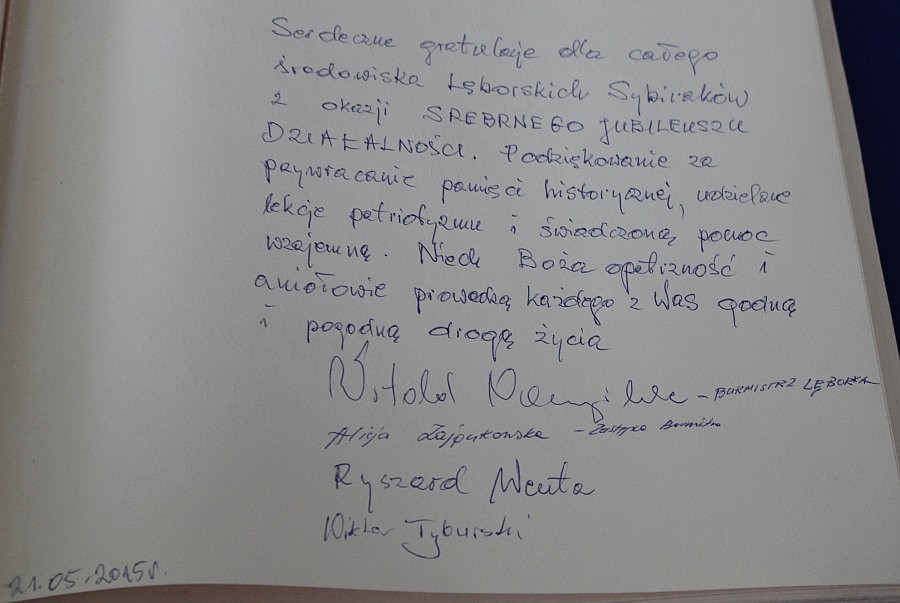 Serdeczne gratulacje dla całego
środowiska Lęborskich Sybiraków
z okazji SREBRNEGO JUBILEUSZU
DZIAŁALNOŚCI. Podziękowanie za
przywracanie pamięci historycznej, udzielane
lekcje patriotyzmu i świadczoną pomoc
wzajemną. Niech Boża opatrzność i
aniołowie prowadzą każdego z Was godną
i pogodną drogą życia
Witold Namyślak - BURMISTRZ LĘBORKA
Alicja Zajączkowska - Zastępca Burmistrza
Ryszard Wenta
Wiktor Tyburski
21.05.2015r.